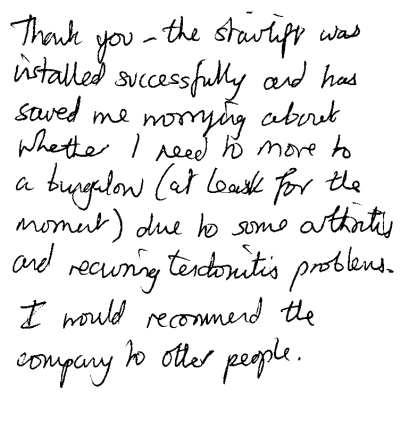 Thank you - the stairlift was
installed successfully and has
saved me worrying about
whether I need to move to
a bungalow (at least for the
moment) due to some arthritis
and recurring tendonitis problems.
I would recommend the
company to other people.